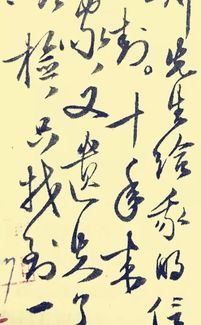 先生给我的信
封。十年来
家，又遗失了
检，只找到一